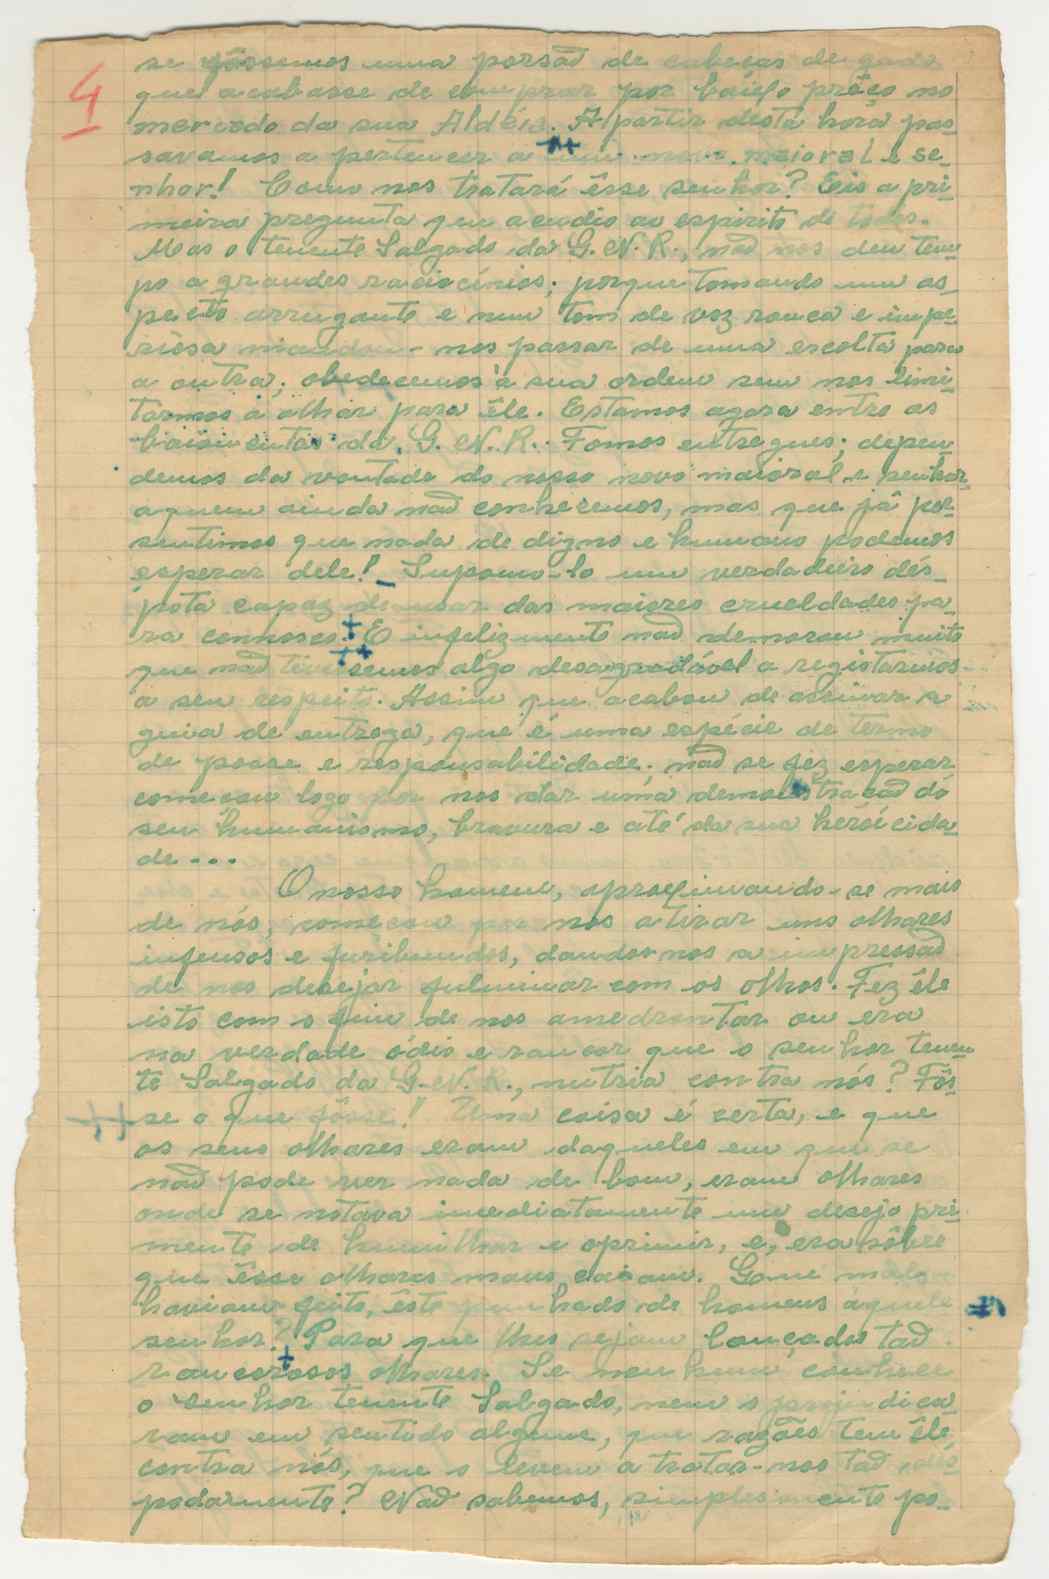 4
se fôssemos uma porsaõ de cabeças de gado
que acabasse de comprar por baixo prêço no
mercado da sua Aldéia. A partir désta hora pas-
savamos a pertencer a um novo maioral e se-
nhor! Como nos tratará êsse senhor? Eis a pri-
meira pregunta que acudio ao espirito de todos.
Mas o tenente Salgado da G. N. R., naõ nos deu tem-
po a grandes raciocínios; porque tomando um as-
pecto arrugante e num tom de voz rouca e impe-
riósa mandou-nos passar de uma escolta para
a outra; obedecemos á sua ordem sem nos limi-
tarmos a olhar para êle. Estamos agora entre as
baionetas da G. N. R.. Fomos entregues; depen-
demos da vontade do nosso novo maioral e senhor
aquem ainda naõ conhecemos, mas que já pre-
sentimos que nada de digno e humano podemos
esperar dele! Supomo-lo um verdadeiro dés-
pota capaz de usar das maiores crueldades pa-
ra connosco. E infelizmente naõ demorou muito
que naõ tivessemos algo desagradável a registarmos
a seu respeito. Assim que acabou de assinar a
guia de entrega, que é uma espécie de termo
de posse e responsabilidade; naõ se fez esperar
começou logo por nos dar uma demonstraçaõ do
seu humanismo, bravura e até da sua heróicida-
de...
O nosso homem, aproximando-se mais
de nós, começou por nos atirar uns olhares
infensos e furibundos, dando-nos a impressaõ
de nos desejar fulminar com os olhos. Fez êle
isto com o fim de nos amedrontar ou era
na verdade ódio e rancor que o senhor tenen-
te Salgado da G. N. R., nutria contra nós? Fôs-
se o que fôsse! Uma coisa é certa, e que
os seus olhares eram daqueles em que se
naõ pode ver nada de bom, eram olhares
onde se nótava imediatamente um desejo pri-
mente de humilhar e oprimir, e, era sôbre
que êsse olhares maus caiam. Game mal
haviam feito, êste punhado de homens áquele
senhor? Para que lhes sejam lançados taõ
rancorosos olhares. Se nenhum conhece
o senhor tenente Salgado, nem o prejudica-
ram em sentido algum, que razões tem êle
contra nós, que o levem a tratar-nos taõ
podarmente? Naõ sabemos, simplesmente po-